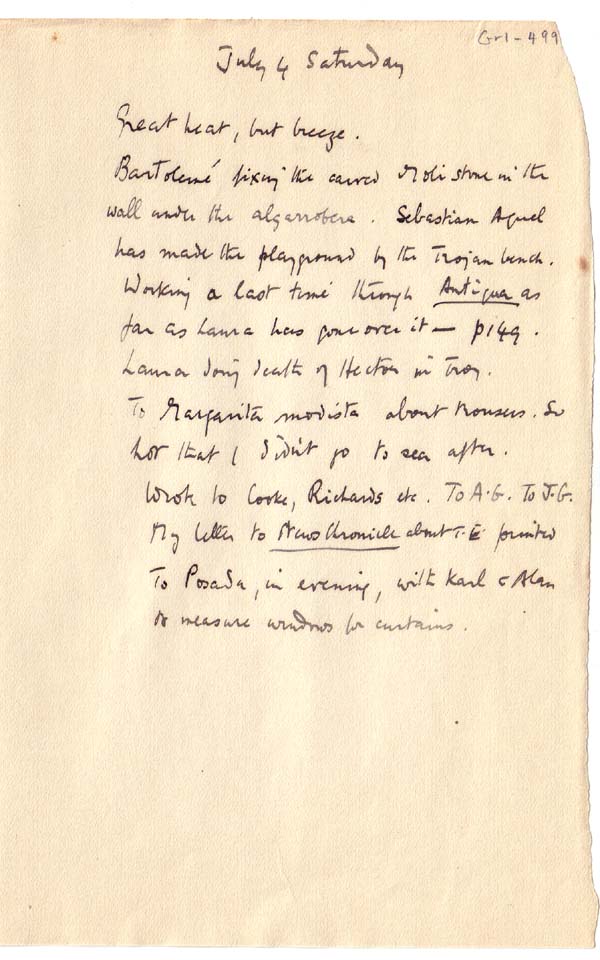 Gr1-499
July 4 Saturday
Great heat, but breeze.
Bartolemé fixing the carved Moli stone in the
wall under the algarrobera. Sebastian Aguel
has made the playground by the Trojan bench.
Working a last time through Antigua as
far as Laura has gone over it — p149.
Laura doing death of Hector in Troy.
To Margarita modista about trousers. So
hot that I didn't go to sea after.
Wrote to Cooke, Richards etc. To A.G. To J.G.
My letter to News Chronicle about T.E printed
To Posada, in evening, with Karl & Alan
to measure windows for curtains.